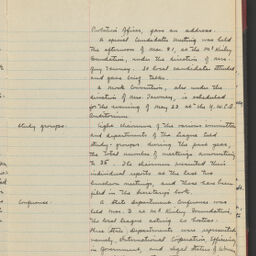 Probation Officer, gave an address.
A special Candidates Meeting was held
the afternoon of Mar. 21, at the McKinley
Foundation, under the direction of Mrs.
Guy Tawney. 20 local candidates attended
and gave brief talks.
A Mock Convention, also under the
direction of Mrs. Tawney, is scheduled
for the evening of May 23 at the Y.W.C.A.
Auditorium.
Study groups.
Eight chairmen of the various committees
and departments of the league held
study-groups during the past year,
the total number of meetings amounting
to 35. The chairmen presented their
individual reports at the last two
luncheon meetings, and these have been
filed in the Secretary's book.
Conference:
A State Departments Conference was
held Mar. 2 at McKinley Foundation,
the local league acting as hostess.
Three state departments were represented
namely, International Cooperation, Efficiency
in Government, and Legal Status of Women